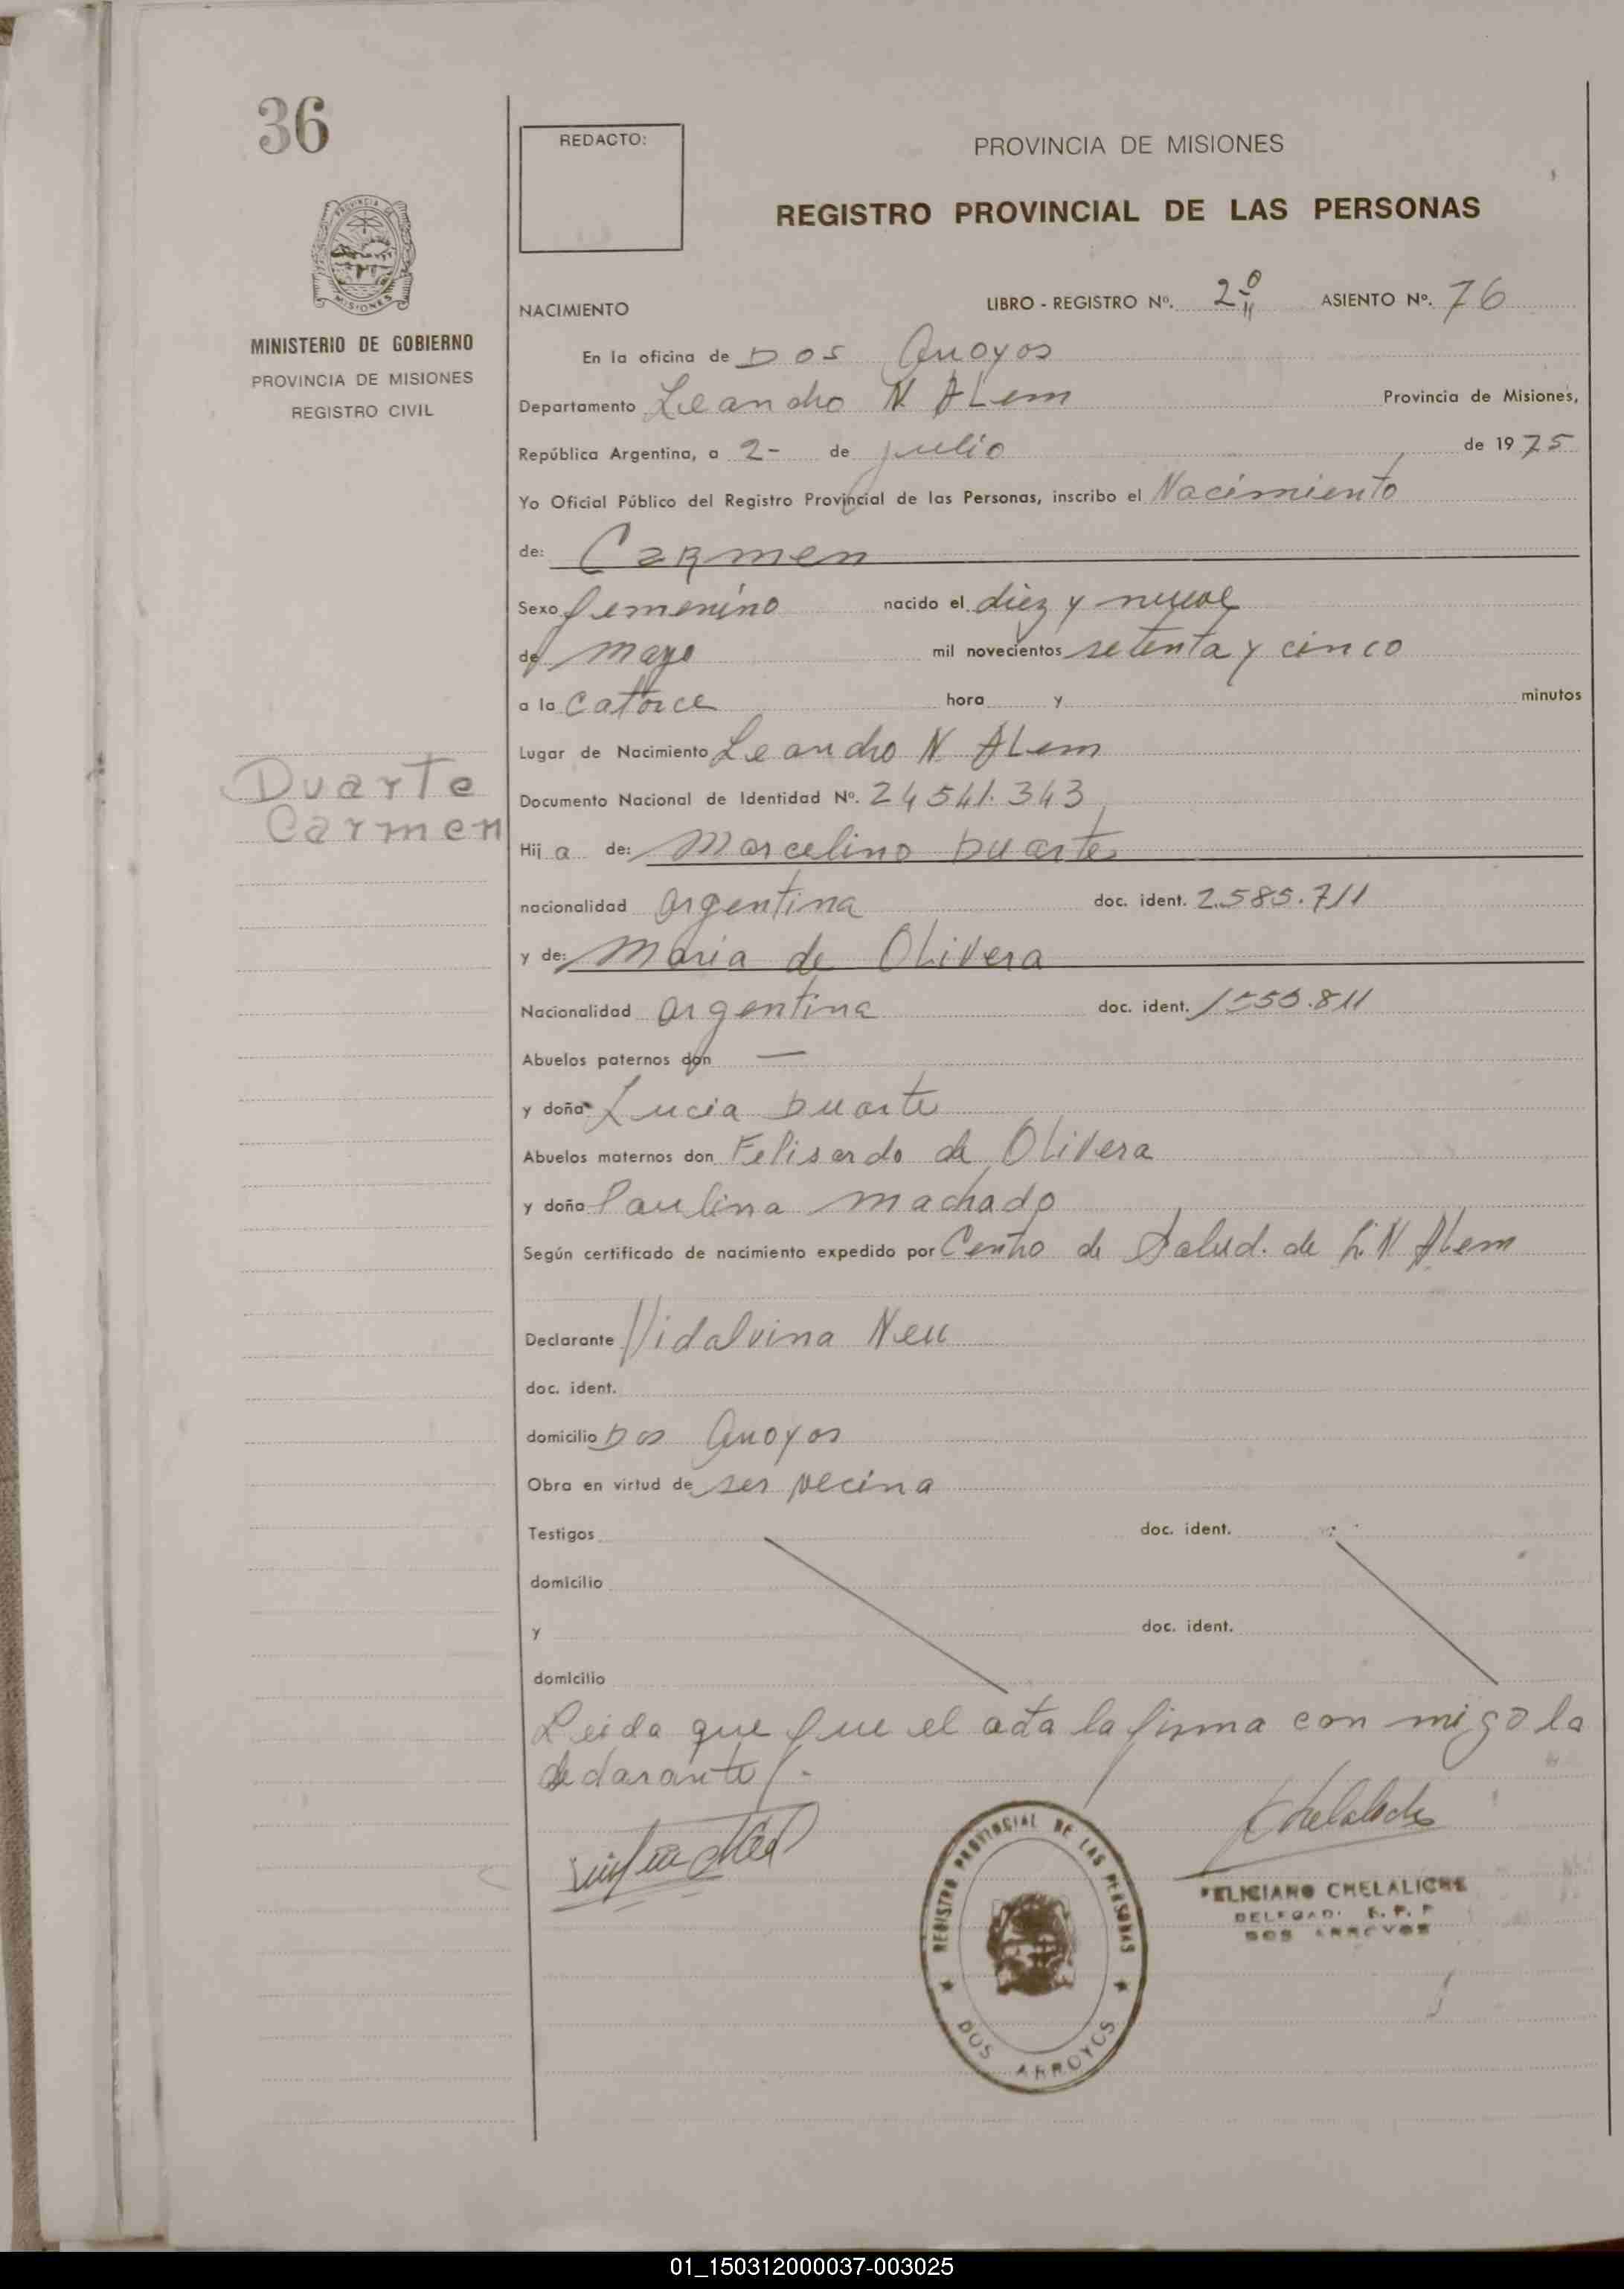 36
REDACTO:
PROVINCIA DE MISIONES
REGISTRO PROVINCIAL DE LAS PERSONAS
PROVINCIA DE
MISIONES
MINISTERIO DE GOBIERNO
PROVINCIA DE MISIONES
REGISTRO CIVIL
NACIMIENTO LIBRO - REGISTRO Nº. 2º ASIENTO Nº. 76
En la oficina de Dos Arroyos
Departamento Leandro N ALem Provincia de Misiones,
República Argentina, a 2- de julio de 1975
Yo Oficial Público del Registro Provincial de las Personas, inscribo el Nacimiento
de: Carmen
Sexo femenino nacido el diez y nueve
de mayo mil novecientos setenta y cinco
a la catorce hora y minutos
Lugar de Nacimiento Leandro N ALem
Duarte
Carmen
Documento Nacional de Identidad Nº. 24541.343
Hij a de: Marcelino Duarte
nacionalidad argentina doc. ident. 2.585.711
y de: Maria de OLivera
Nacionalidad argentina doc. ident.
Abuelos paternos don —
y doña Lucia Duarte
Abuelos maternos don Felisardo de OLivera
y doña Paulina Machado
Según certificado de nacimiento expedido por Centro de Salud. de L. N ALem
Declarante Vidalvina Neu
doc. ident.
domicilio Dos Arroyos
Obra en virtud de ser vecina
Testigos doc. ident.
domicilio
y doc. ident.
domicilio
Leida que fue el acta la firma con migo la
declarante/.-
Chelaliche
REGISTRO PROVINCIAL DE LAS PERSONAS
DOS ARROYOS
FELICIANO CHELALICHE
DELEGAD. R. P. P
DOS ARROYOS
01_150312000037-003025